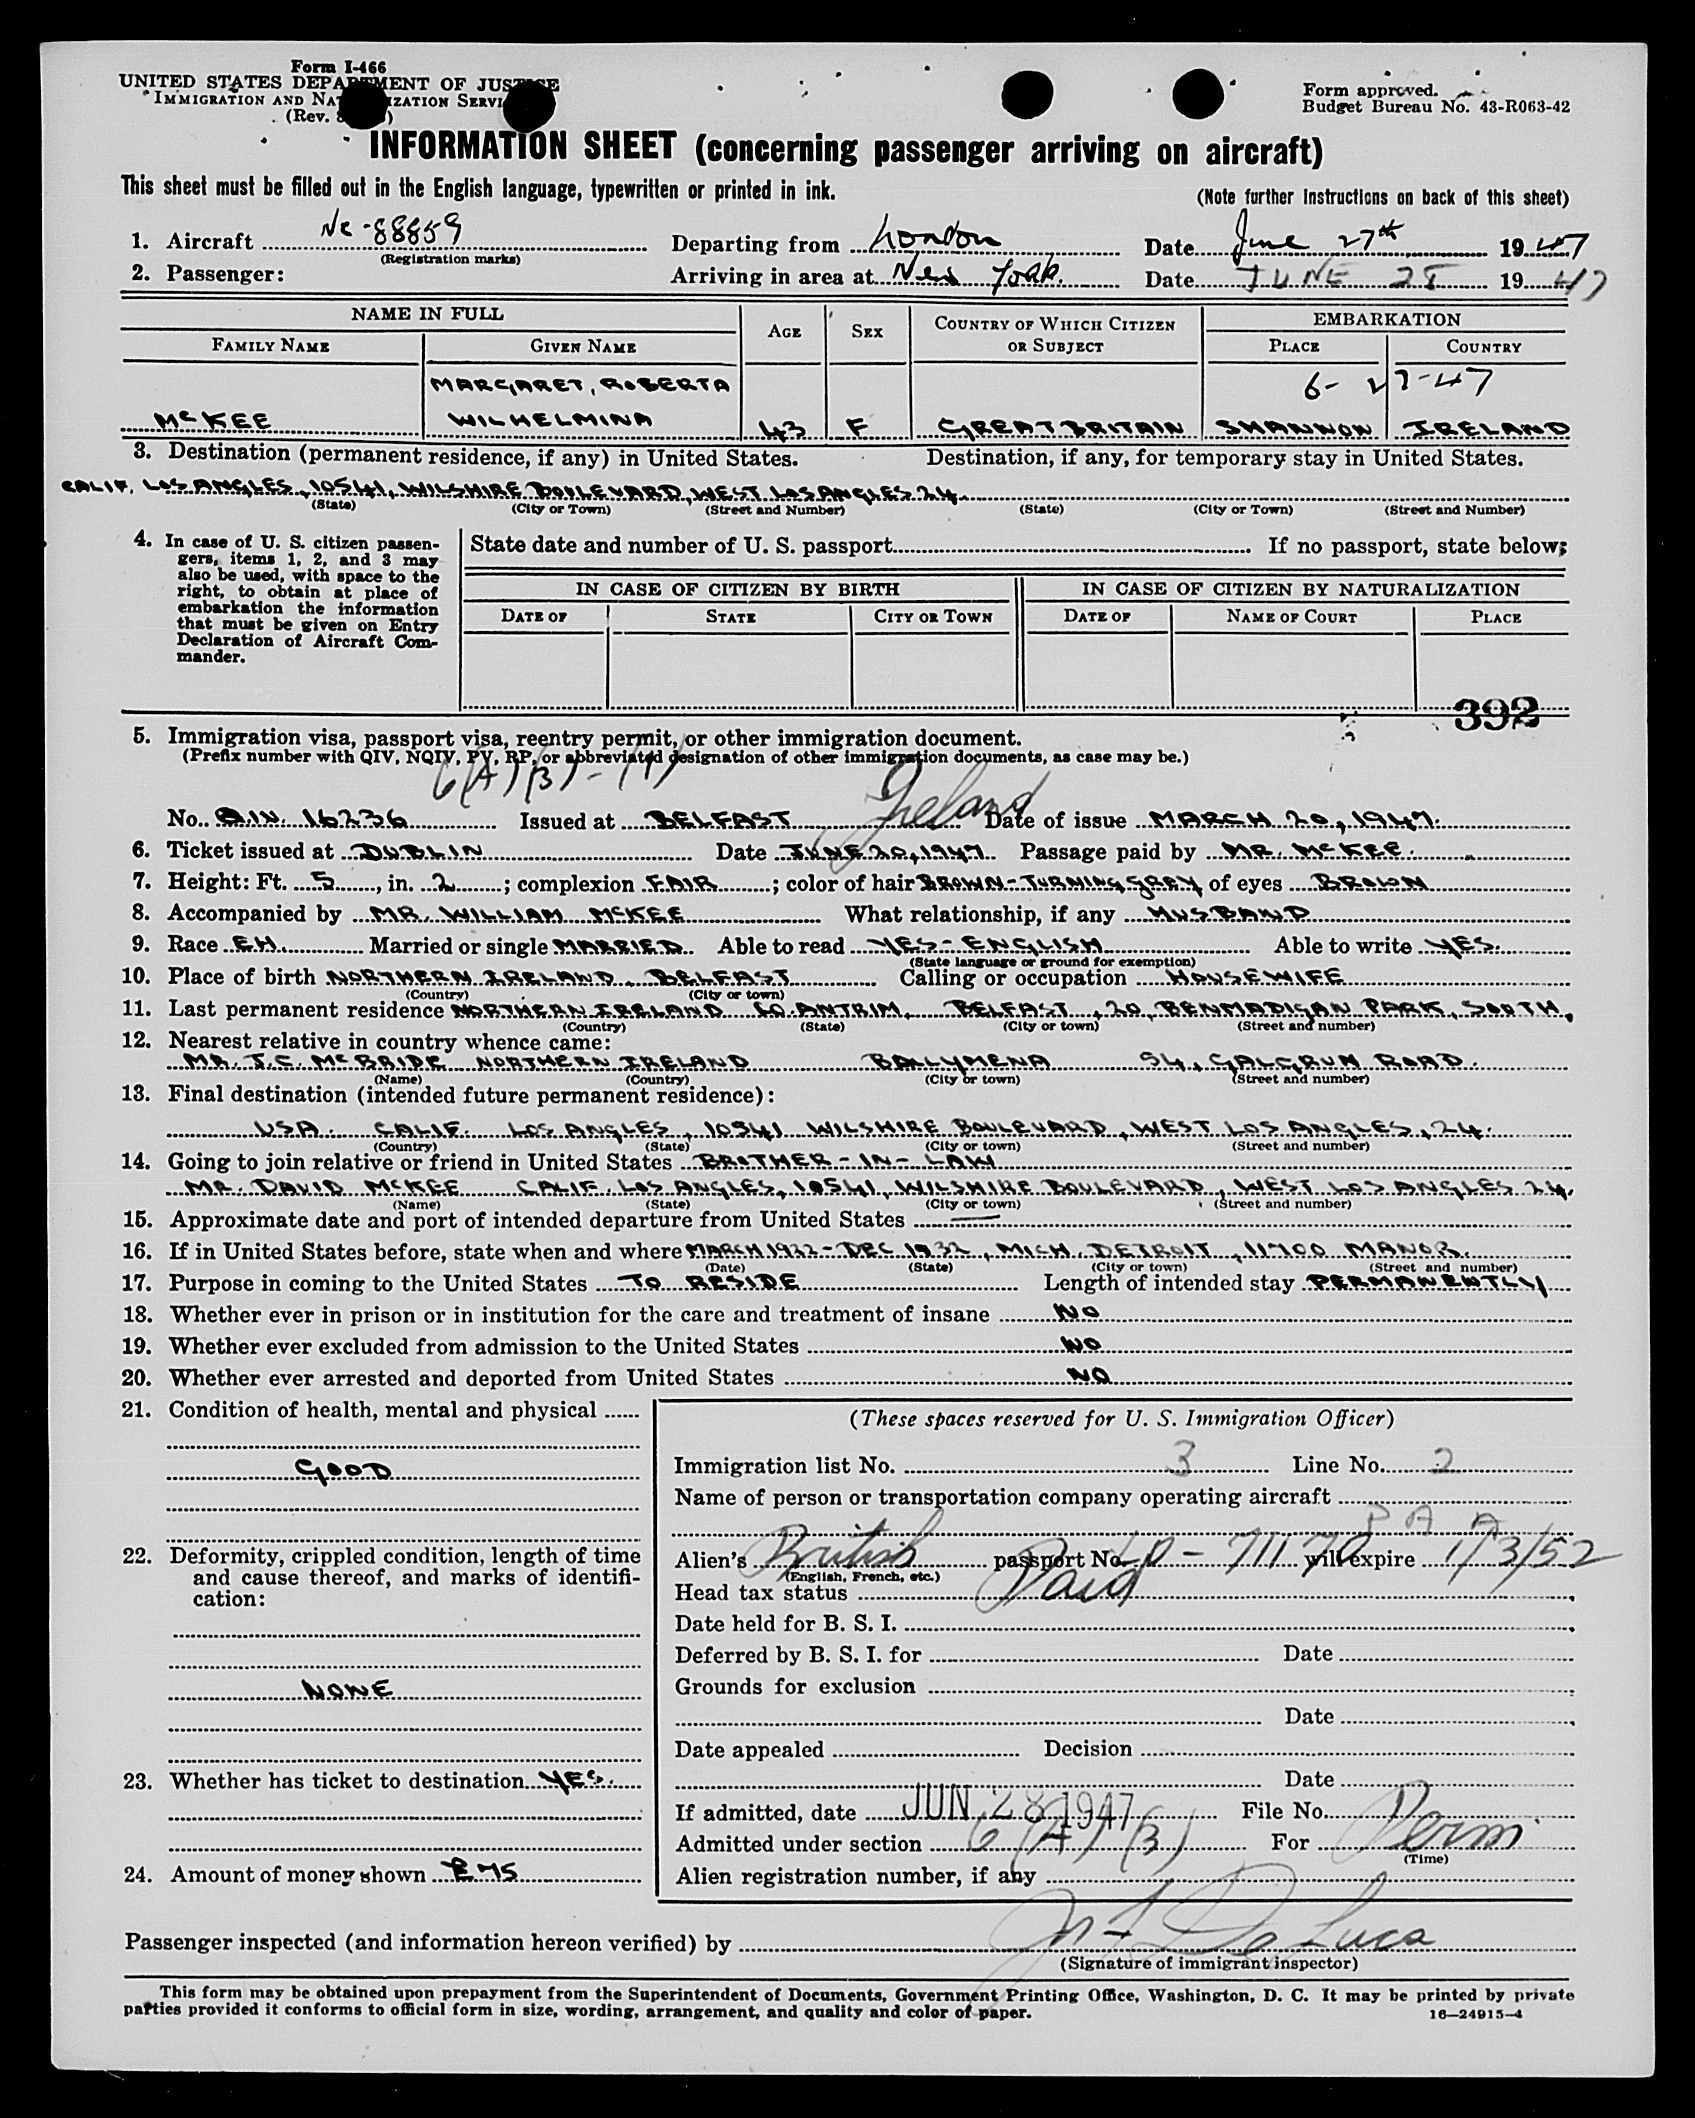 Form I-466
UNITED STATES DEPARTMENT OF JUSTICE
IMMIGRATION AND NATURALIZATION SERVICE
(Rev. )
Form approved.
Budget Bureau No. 43-R063-42
INFORMATION SHEET (concerning passenger arriving on aircraft)
This sheet must be filled out in the English language, typewritten or printed in ink.
(Note further instructions on back of this sheet)
1. Aircraft Nc-88859 Departing from London Date June 27th 1947
(Registration marks)
2. Passenger: Arriving in area at New York. Date JUNE 28 1947
NAME IN FULL AGE SEX COUNTRY OF WHICH CITIZEN OR SUBJECT EMBARKATION
FAMILY NAME GIVEN NAME PLACE COUNTRY
MARGARET, ROBERTA 6-27-47
McKEE WILHELMINA 43 F GREAT BRITAIN SHANNON IRELAND
3. Destination (permanent residence, if any) in United States. Destination, if any, for temporary stay in United States.
CALIF. LOS ANGLES, 10541, WILSHIRE BOULEVARD, WEST LOS ANGLES 24.
(State) (City or Town) (Street and Number) (State) (City or Town) (Street and Number)
4. In case of U. S. citizen passen-
gers, items 1, 2, and 3 may
also be used, with space to the
right, to obtain at place of
embarkation the information
that must be given on Entry
Declaration of Aircraft Com-
mander.
State date and number of U. S. passport If no passport, state below:
IN CASE OF CITIZEN BY BIRTH IN CASE OF CITIZEN BY NATURALIZATION
DATE OF STATE CITY OR TOWN DATE OF NAME OF COURT PLACE
392
5. Immigration visa, passport visa, reentry permit, or other immigration document.
(Prefix number with QIV, NQIV, PV, RP, or abbreviated designation of other immigration documents, as case may be.)
6(A)(3)-(1) Ireland
No. Q.I.V. 16236 Issued at BELFAST Date of issue MARCH 20, 1947.
6. Ticket issued at DUBLIN Date JUNE 20, 1947. Passage paid by MR. McKEE.
7. Height: Ft. 5, in. 2; complexion FAIR; color of hair BROWN-TURNING GREY of eyes BROWN
8. Accompanied by MR. WILLIAM McKEE What relationship, if any HUSBAND
9. Race EH. Married or single MARRIED. Able to read YES-ENGLISH Able to write YES.
(State language or ground for exemption)
10. Place of birth NORTHERN IRELAND, BELFAST Calling or occupation HOUSEWIFE
(Country) (City or town)
11. Last permanent residence NORTHERN IRELAND CO. ANTRIM, BELFAST, 20, BENMADIGAN PARK, SOUTH,
(Country) (State) (City or town) (Street and number)
12. Nearest relative in country whence came:
MR. J.C. McBRIDE NORTHERN IRELAND BALLYMENA 54, GALGRUM ROAD.
(Name) (Country) (City or town) (Street and number)
13. Final destination (intended future permanent residence):
USA. CALIF. LOS ANGLES, 10541 WILSHIRE BOULEVARD, WEST LOS ANGLES, 24.
(Country) (State) (City or town) (Street and number)
14. Going to join relative or friend in United States BROTHER-IN-LAW
MR. DAVID McKEE CALIF. LOS ANGLES, 10541, WILSHIRE BOULEVARD, WEST LOS ANGLES 24.
(Name) (State) (City or town) (Street and number)
15. Approximate date and port of intended departure from United States —
16. If in United States before, state when and where MARCH 1922 - DEC 1932, MICH. DETROIT, 11700 MANOR.
(Date) (State) (City or town) (Street and number)
17. Purpose in coming to the United States TO RESIDE Length of intended stay PERMANENTLY
18. Whether ever in prison or in institution for the care and treatment of insane NO
19. Whether ever excluded from admission to the United States NO
20. Whether ever arrested and deported from United States NO
21. Condition of health, mental and physical
GOOD
22. Deformity, crippled condition, length of time
and cause thereof, and marks of identifi-
cation:
NONE
23. Whether has ticket to destination YES.
24. Amount of money shown £75
(These spaces reserved for U. S. Immigration Officer)
Immigration list No. 3 Line No. 2
Name of person or transportation company operating aircraft
P A A
Alien's British passport No. D-71170 will expire 1/3/52
(English, French, etc.)
Head tax status Paid
Date held for B. S. I.
Deferred by B. S. I. for Date
Grounds for exclusion
Date
Date appealed Decision
Date
If admitted, date JUN 28 1947 File No.
Admitted under section 6(A)(3) For Perm.
(Time)
Alien registration number, if any
Passenger inspected (and information hereon verified) by De Luca
(Signature of immigrant inspector)
This form may be obtained upon prepayment from the Superintendent of Documents, Government Printing Office, Washington, D. C. It may be printed by private
parties provided it conforms to official form in size, wording, arrangement, and quality and color of paper.
16—24915-4